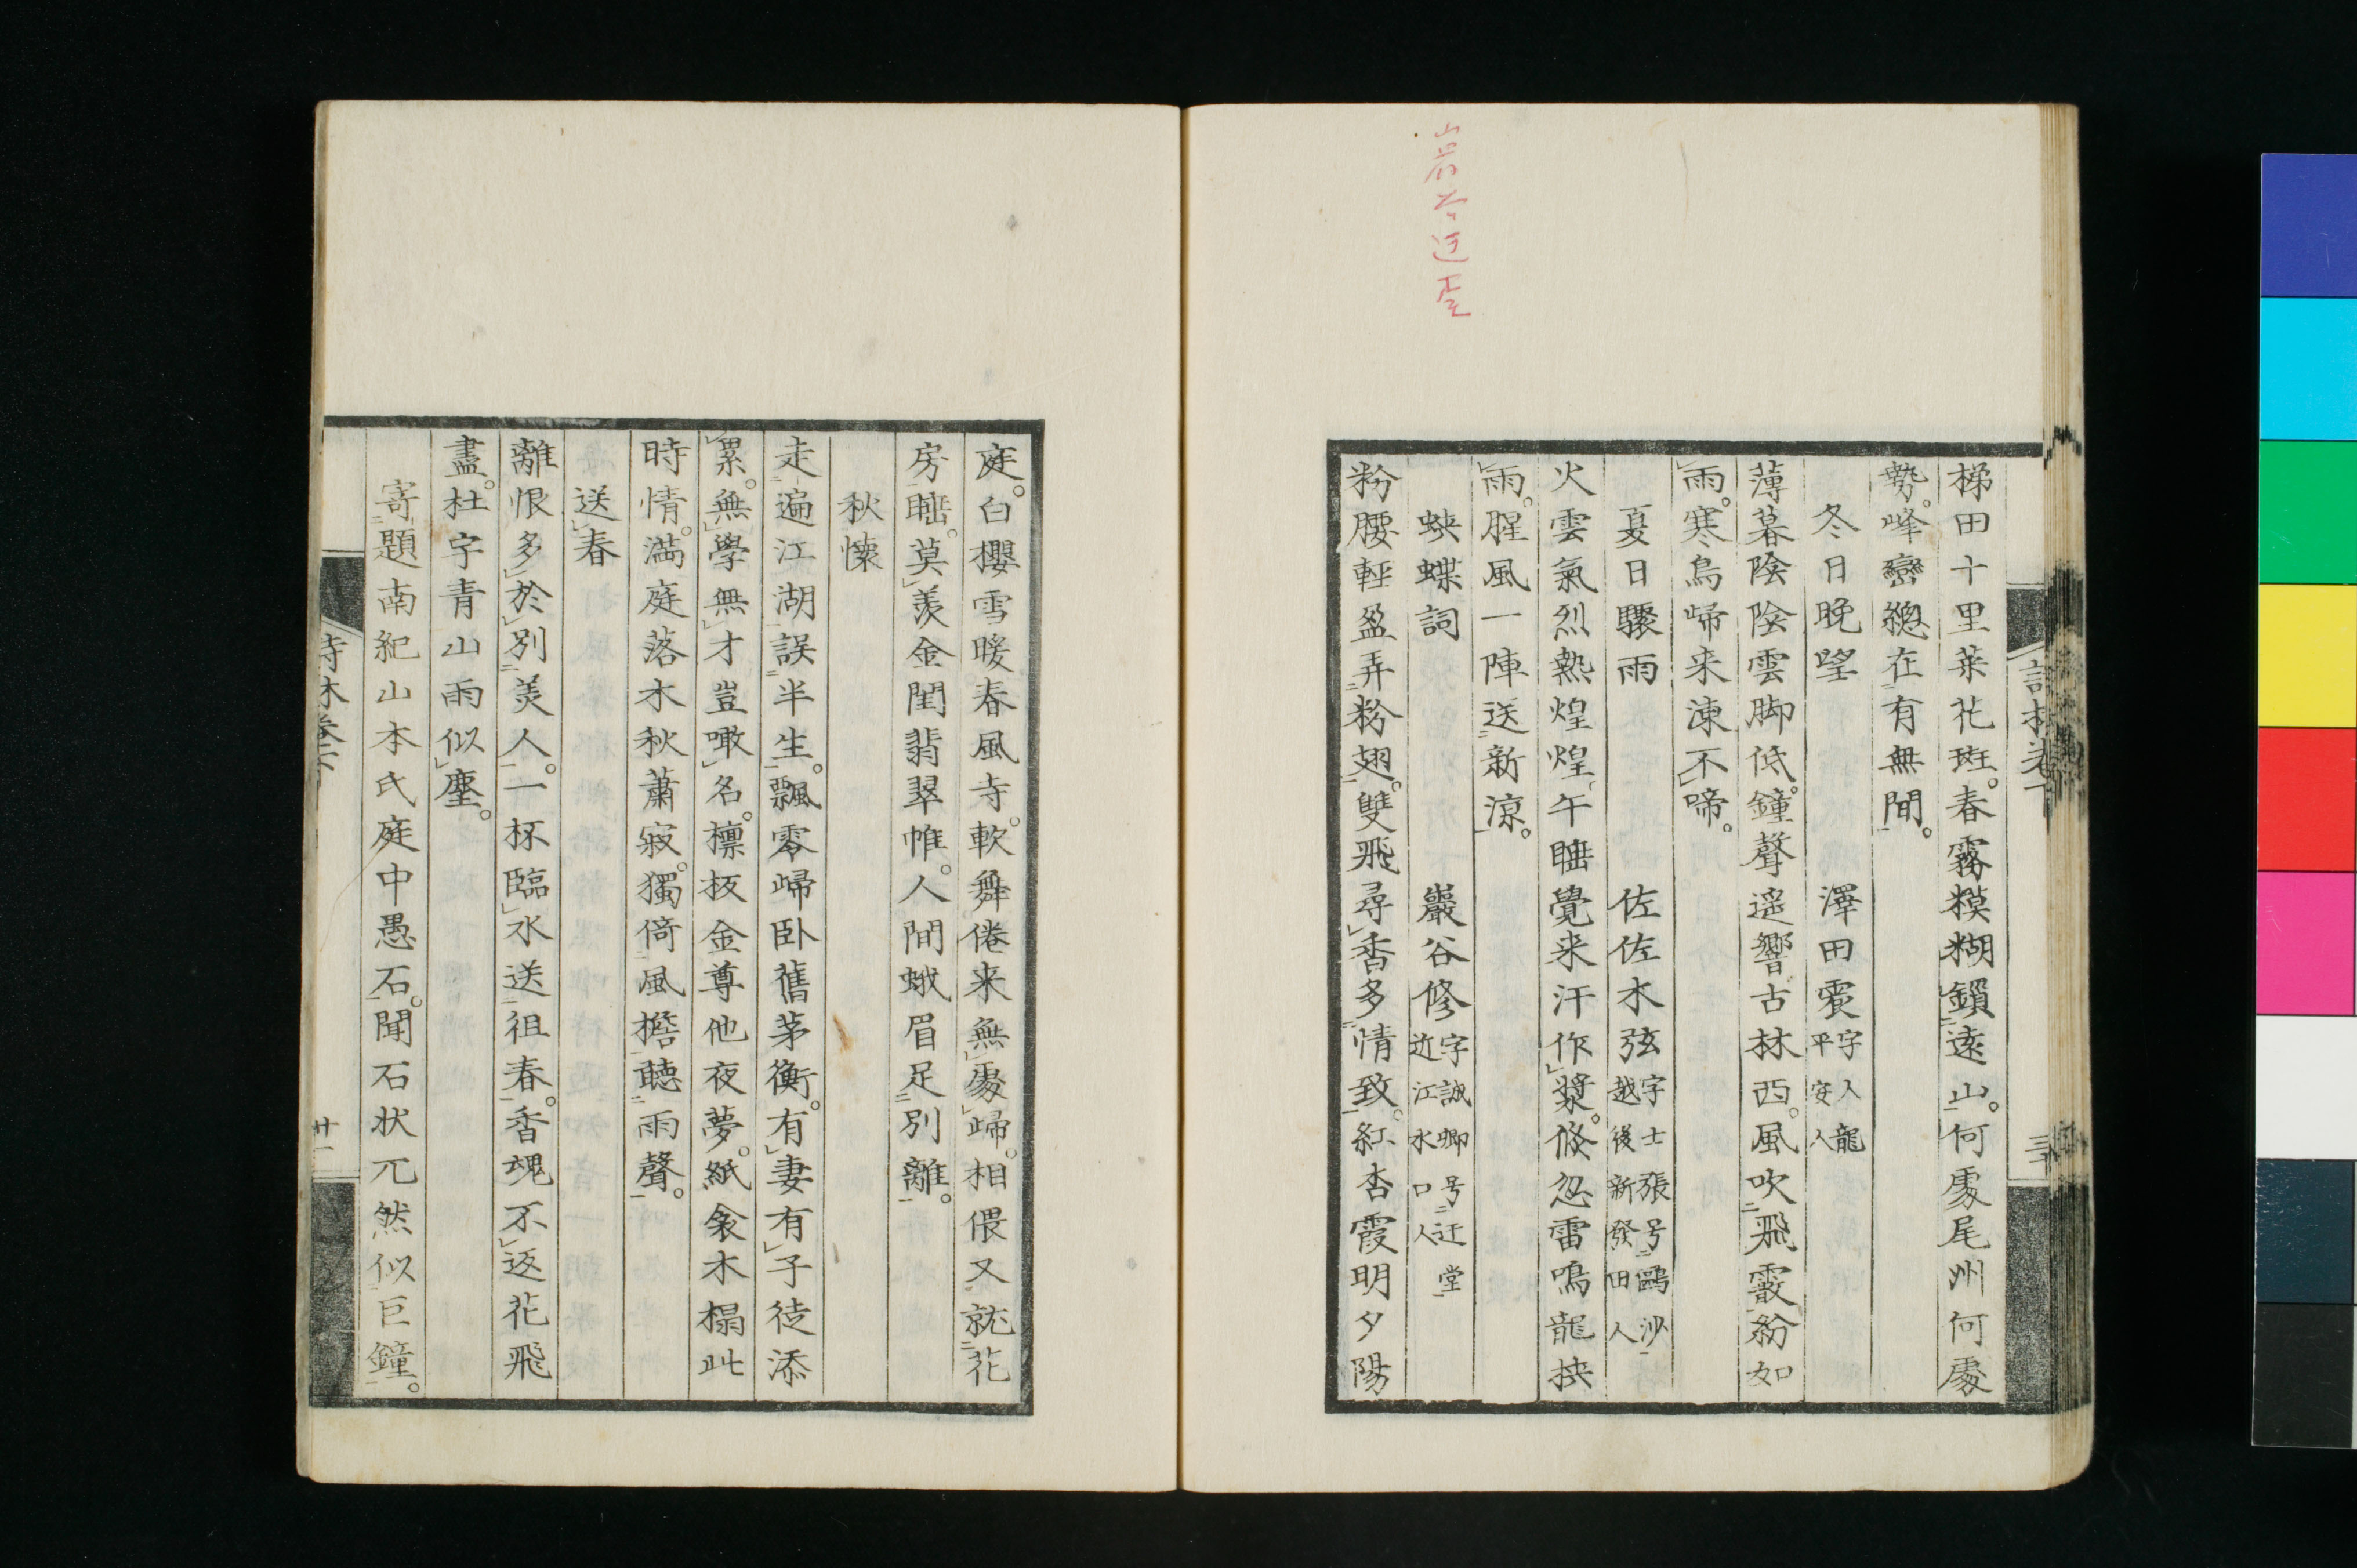 梯田十里菜花斑。春霧糢糊鎖遠山。何處尾州何處
勢。峰巒總在有無間。
冬日晩望 澤田寉字人龍平安人
薄暮陰陰雲脚低。鐘聲遥響古林西。風吹飛霰紛如
雨。寒烏啼来凍不啼。
夏日驟雨 佐佐木弦字士張号鷗沙越後新發田人
火雲氣烈熱煌煌。午睡覺来汗作漿。倐忽雷鳴龍挾
雨。腥風一陣送新涼。
蛺蝶詞 巖谷修字誠卿号迂堂近江水口人
粉腰輕盈弄粉翅。雙飛尋香多情致。紅杏霞明夕陽
庭。白櫻雪暖春風寺。軟舞倦来無處歸。相偎又就花
房睡。莫羨金閨翡翠帷。人間蛾眉足別離。
秋懐
走遍江湖誤半生。飄零歸卧舊茅衡。有妻有子徒添
累。無學無才豈噉名。檀板金尊他夜夢。紙衾木榻此
時情。滿庭落木秋蕭寂。獨倚風檐聽雨聲。
送春
離恨多於別羙人。一杯臨水送祖春。香魂不返花飛
盡。杜宇青山雨似塵。
寄題南紀山本氏庭中愚石。聞石状兀然似巨鐘。
詩林巻下
廿一